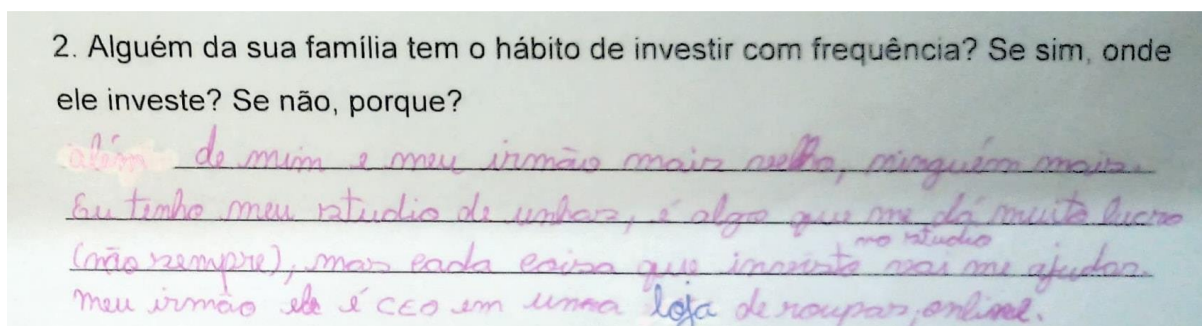 2. Alguém da sua família tem o hábito de investir com frequência? Se sim, onde
ele investe? Se não, porque?
além de mim e meu irmão mais velho, ninguém mais.
Eu tenho meu studio de unhas, é algo que me dá muito lucro
no studio
(não sempre), mas cada coisa que invisto vai me ajudar.
meu irmão ele é CEO em uma loja de roupas, online.